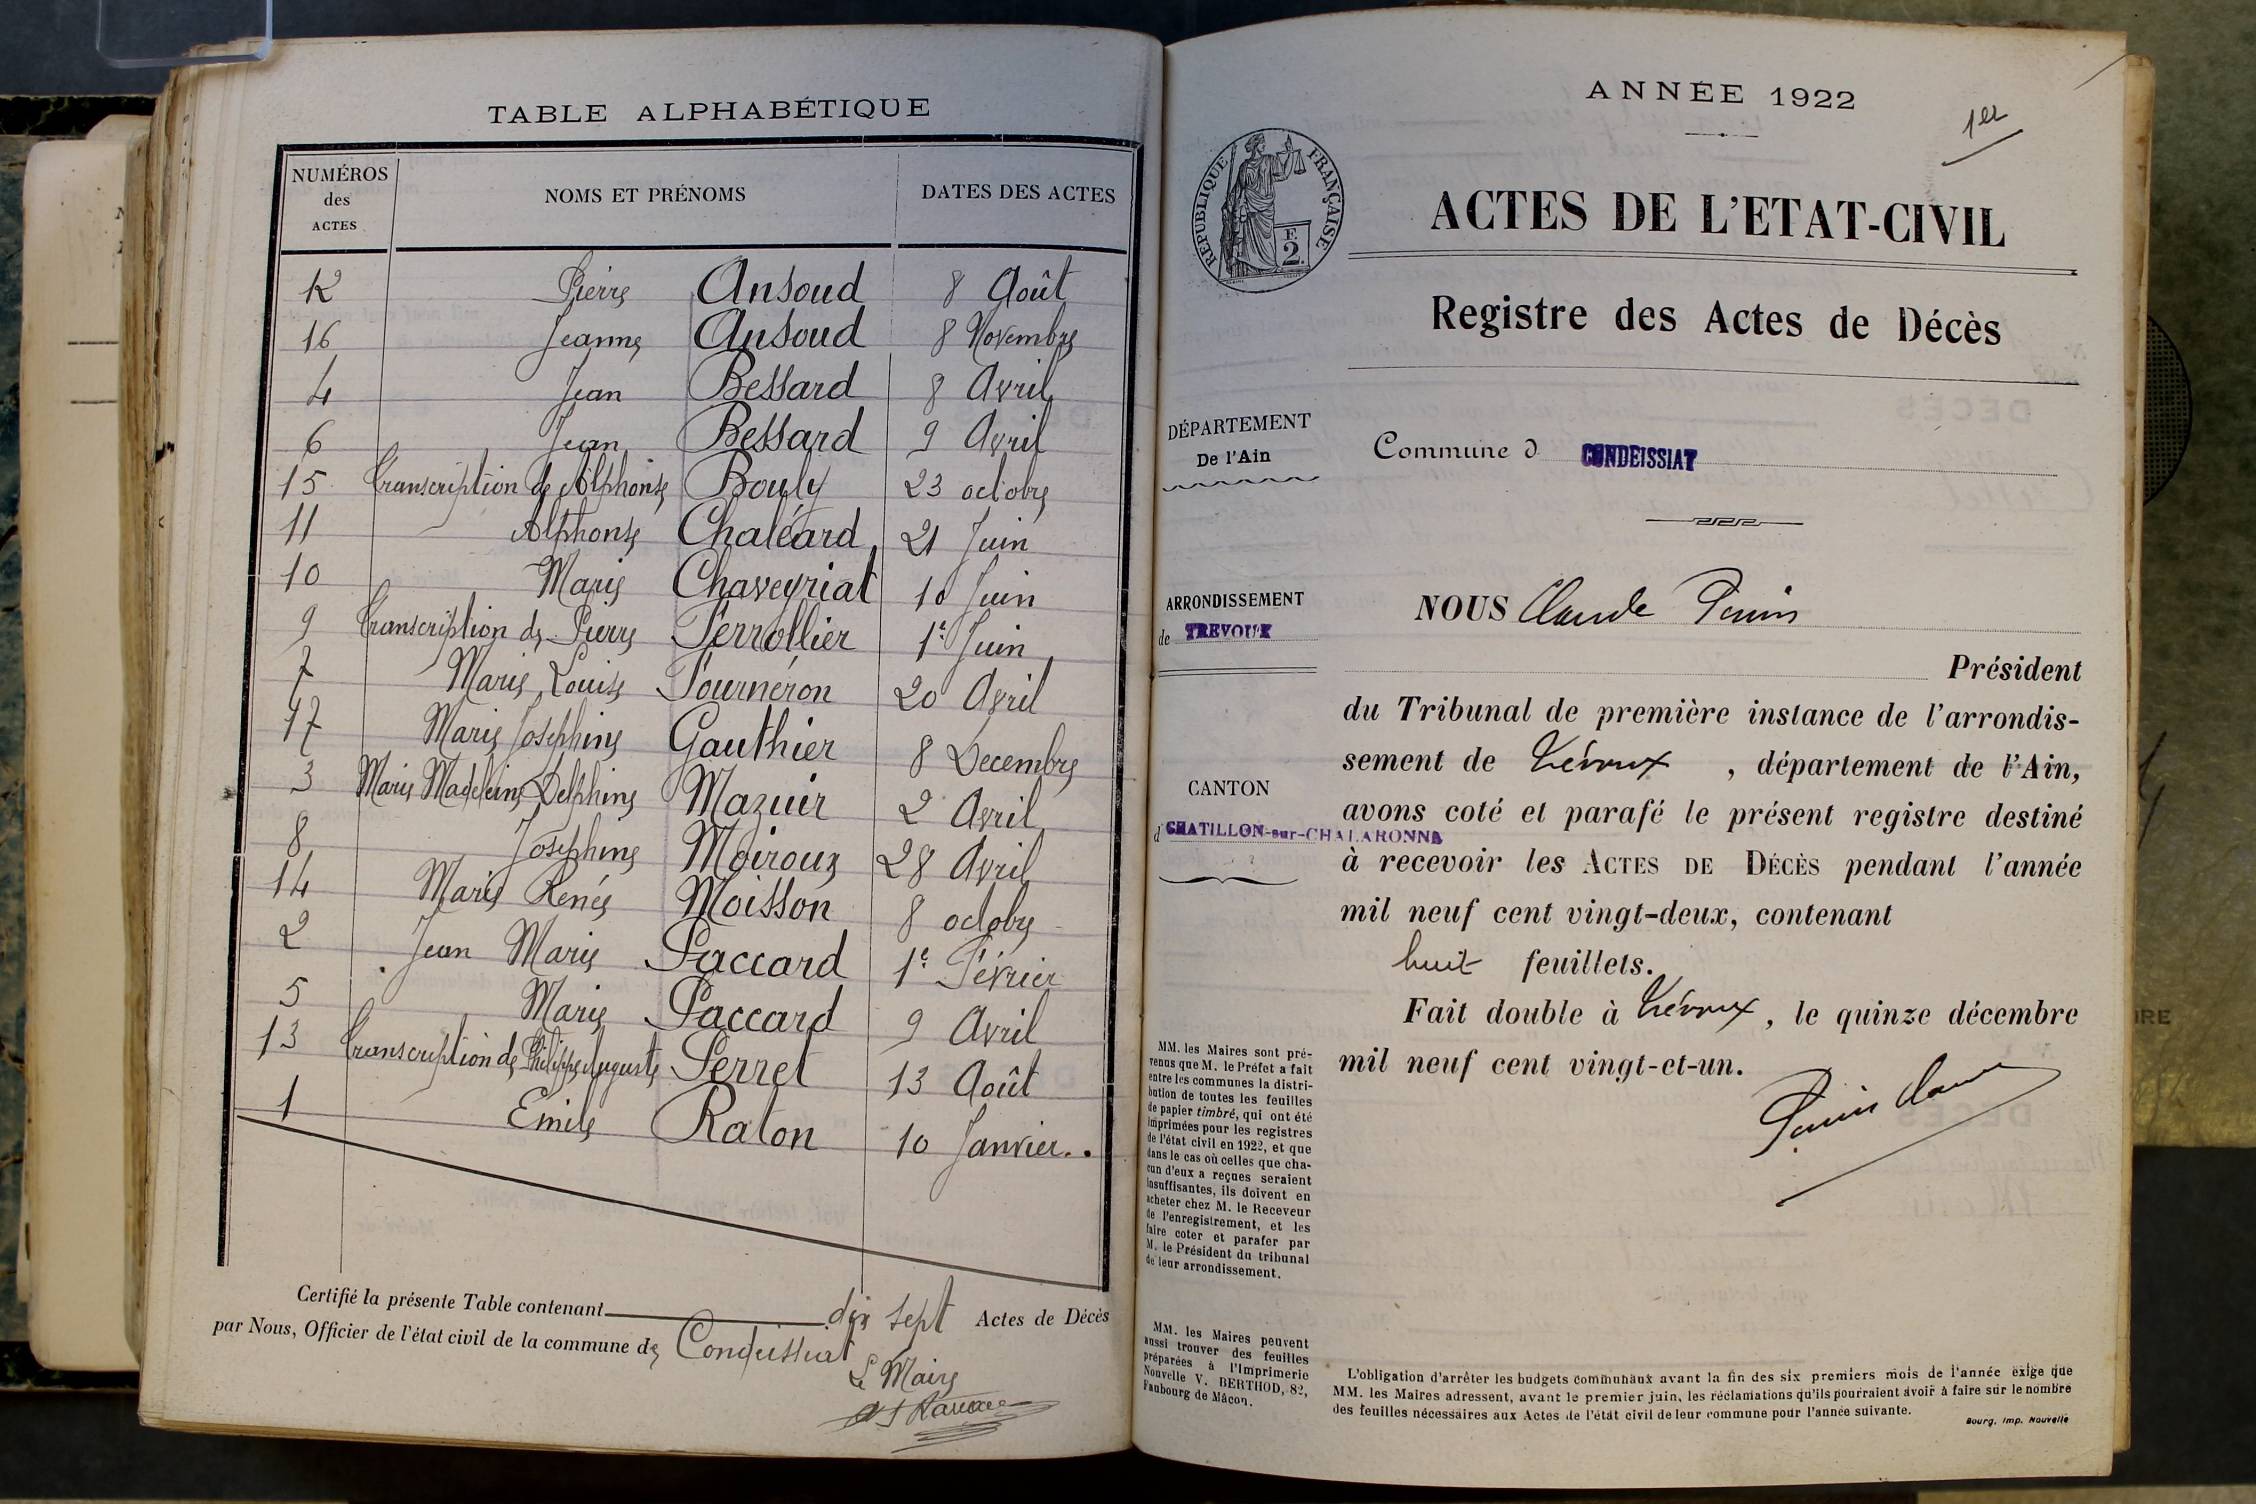 TABLE ALPHABÉTIQUE
NUMÉROS des ACTES NOMS ET PRÉNOMS DATES DES ACTES
12 Pierre Ansoud 8 Août
16 Jeanne Ansoud 8 Novembre
4 Jean Bessard 8 Avril
6 Jean Bessard 9 Avril
15 Transcription de Alphonse Bouly 23 octobre
11 Alphonse Chaléard 21 Juin
10 Marie Chaveyriat 10 Juin
9 Transcription de Pierre Ferrollier 1e Juin
7 Marie Louise Fourneron 20 Avril
17 Marie Josephine Gauthier 8 Decembre
3 Marie Madeleine Delphine Mazuir 2 Avril
8 Josephine Moiroux 28 Avril
14 Marie Renée Moisson 8 octobre
2 Jean Marie Paccard 1e Février
5 Marie Paccard 9 Avril
13 Transcription de Philippe Auguste Perret 13 Août
1 Emile Raton 10 Janvier..
Certifié la présente Table contenant dix sept Actes de Décès
par Nous, Officier de l'état civil de la commune de Condeissiat
Le Maire
ANNÉE 1922
1er
RÉPUBLIQUE FRANÇAISE
F.
2.
ACTES DE L'ETAT-CIVIL
Registre des Actes de Décès
DÉPARTEMENT
De l'Ain
Commune d CONDEISSIAT
ARRONDISSEMENT
de TREVOUX
CANTON
d CHATILLON-sur-CHALARONNE
NOUS Claude Perrin
Président
du Tribunal de première instance de l'arrondis-
sement de Trévoux, département de l'Ain,
avons coté et parafé le présent registre destiné
à recevoir les ACTES DE DÉCÈS pendant l'année
mil neuf cent vingt-deux, contenant
huit feuillets.
Fait double à Trévoux, le quinze décembre
mil neuf cent vingt-et-un.
MM. les Maires sont pré-
venus que M. le Préfet a fait
entre les communes la distri-
bution de toutes les feuilles
de papier timbré, qui ont été
imprimées pour les registres
de l'état civil en 1922, et que
dans le cas où celles que cha-
cun d'eux a reçues seraient
insuffisantes, ils doivent en
acheter chez M. le Receveur
de l'enregistrement, et les
faire coter et parafer par
M. le Président du tribunal
de leur arrondissement.
MM. les Maires peuvent
aussi trouver des feuilles
préparées à l'Imprimerie
Nouvelle V. BERTHOD, 82,
Faubourg de Mâcon.
L'obligation d'arrêter les budgets communaux avant la fin des six premiers mois de l'année exige que
MM. les Maires adressent, avant le premier juin, les réclamations qu'ils pourraient avoir à faire sur le nombre
des feuilles nécessaires aux Actes de l'état civil de leur commune pour l'année suivante.
Bourg, Imp. Nouvelle